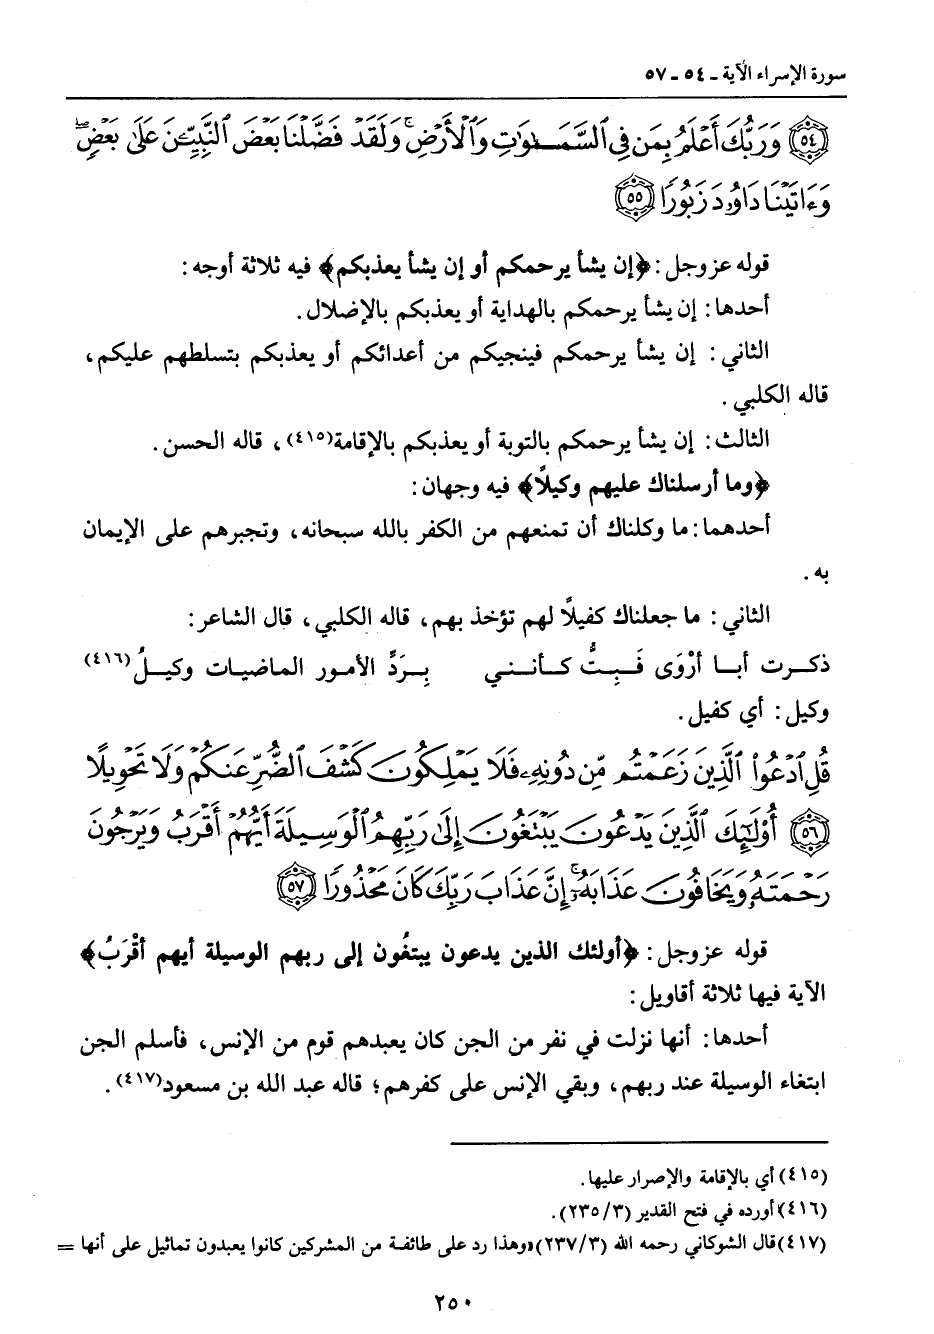 سورة الإسراء الآية ـ ٥٤ ـ ٥٧
﴿٥٤﴾ وَرَبُّكَ أَعْلَمُ بِمَن فِي ٱلسَّمَـٰوَٰتِ وَٱلْأَرْضِ ۗ وَلَقَدْ فَضَّلْنَا بَعْضَ ٱلنَّبِيِّـۧنَ عَلَىٰ بَعْضٍ ۖ
وَءَاتَيْنَا دَاوُۥدَ زَبُورًا ﴿٥٥﴾
قوله عز وجل: ﴿إن يشأ يرحمكم أو إن يشأ يعذبكم﴾ فيه ثلاثة أوجه:
أحدها: إن يشأ يرحمكم بالهداية أو يعذبكم بالإضلال.
الثاني: إن يشأ يرحمكم فينجيكم من أعدائكم أو يعذبكم بتسلطهم عليكم،
قاله الكلبي.
الثالث: إن يشأ يرحمكم بالتوبة أو يعذبكم بالإقامة(٤١٥)، قاله الحسن.
﴿وما أرسلناك عليهم وكيلاً﴾ فيه وجهان:
أحدهما: ما وكلناك أن تمنعهم من الكفر بالله سبحانه، وتجبرهم على الإيمان
به.
الثاني: ما جعلناك كفيلاً لهم تؤخذ بهم، قاله الكلبي، قال الشاعر:
ذكـرت أبـا أرْوَى فَـبِتُّ كـأنـنـي بِـرَدِّ الأمـور المـاضيـات وكيـلُ(٤١٦)
وكيل: أي كفيل.
قُلِ ٱدْعُوا۟ ٱلَّذِينَ زَعَمْتُم مِّن دُونِهِۦ فَلَا يَمْلِكُونَ كَشْفَ ٱلضُّرِّ عَنكُمْ وَلَا تَحْوِيلًا
﴿٥٦﴾ أُو۟لَـٰٓئِكَ ٱلَّذِينَ يَدْعُونَ يَبْتَغُونَ إِلَىٰ رَبِّهِمُ ٱلْوَسِيلَةَ أَيُّهُمْ أَقْرَبُ وَيَرْجُونَ
رَحْمَتَهُۥ وَيَخَافُونَ عَذَابَهُۥٓ ۚ إِنَّ عَذَابَ رَبِّكَ كَانَ مَحْذُورًا ﴿٥٧﴾
قوله عز وجل: ﴿أولئك الذين يدعون يبتغُون إلى ربهم الوسيلة أيهم أقْرَبُ﴾
الآية فيها ثلاثة أقاويل:
أحدها: أنها نزلت في نفر من الجن كان يعبدهم قوم من الإنس، فأسلم الجن
ابتغاء الوسيلة عند ربهم، وبقي الإنس على كفرهم؛ قاله عبد الله بن مسعود(٤١٧).
(٤١٥) أي بالإقامة والإصرار عليها.
(٤١٦) أورده في فتح القدير (٢٣٥/٣).
(٤١٧) قال الشوكاني رحمه الله (٢٣٧/٣) «وهذا رد على طائفة من المشركين كانوا يعبدون تماثيل على أنها =
٢٥٠